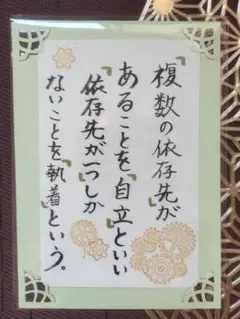 『複数の依存先』が
あることを『自立』といい
『依存先が一つしか
ないこと』を『執着』という.